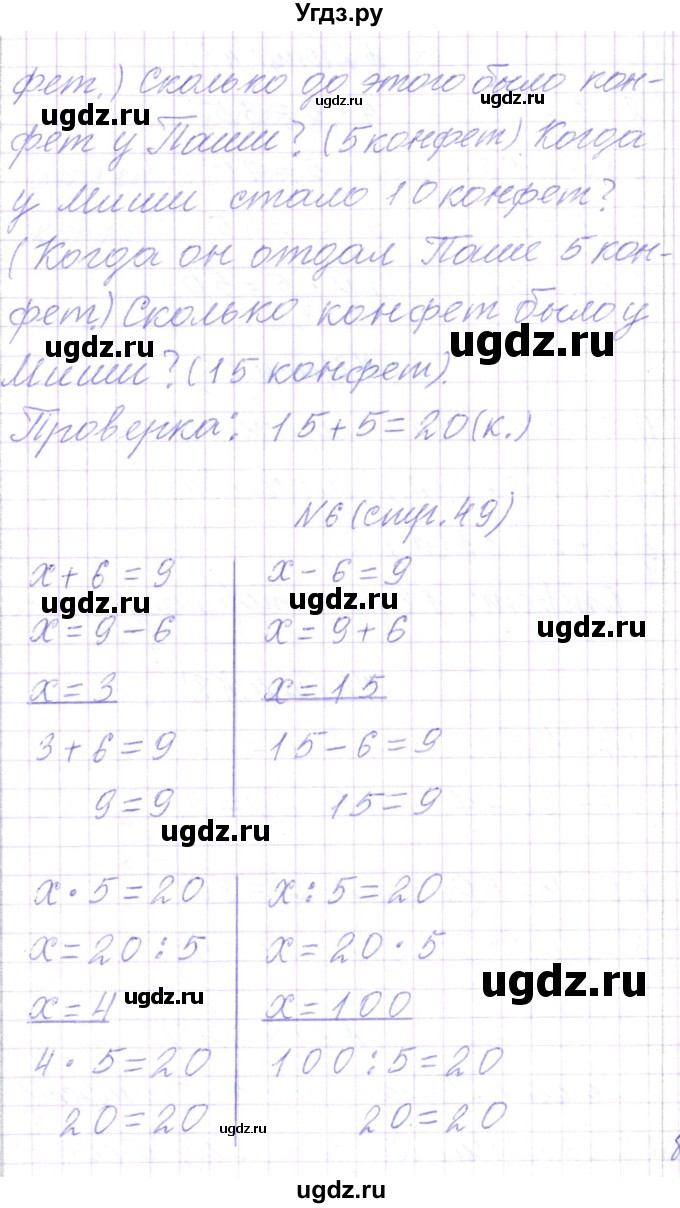 Угдз.ру
фет.) Сколько до этого было кон-
ugdz.ru ugdz.ru ugdz.ru
фет у Паши? (5 конфет) Когда
у Миши стало 10 конфет?
(Когда он отдал Паше 5 кон-
фет.) Сколько конфет было у
ugdz.ru ugdz.ru
Миши? (15 конфет).
Проверка: 15+5=20(к.)
N6 (стр. 49)
x+6=9 x-6=9
ugdz.ru ugdz.ru ugdz.ru
x=9-6 x=9+6
x=3 x=15
3+6=9 15-6=9
9=9 15=9
ugdz.ru
x·5=20 x:5=20
x=20:5 x=20·5
ugdz.ru ugdz.ru
x=4 x=100
4·5=20 100:5=20
20=20 20=20
ugdz.ru